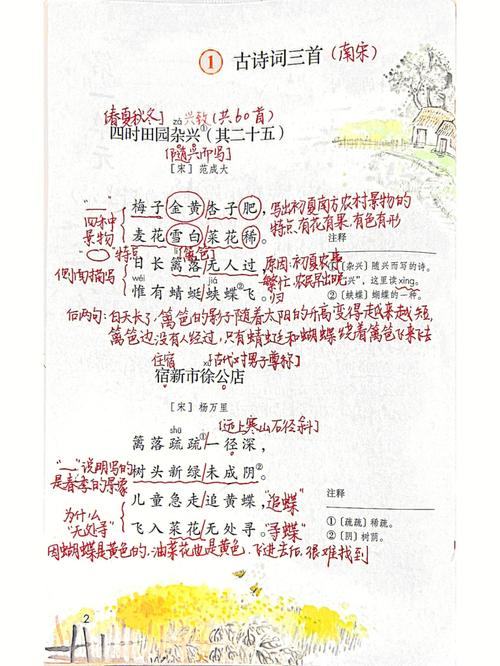 1 古诗词三首（南宋）
[春夏秋冬] zá 兴致（共60首）
四时田园杂兴①（其二十五）
[随兴而写]
[宋] 范成大
梅子金黄杏子肥，写出初夏南方农村景物的
麦花雪白菜花稀。特点，有花有果，有色有形
"—"
四种中
景物
"○"特点 [篱笆]
日长篱落无人过，原因：初夏农事
侧面描写
wéi jiá 繁忙，农民早出晚归
惟有蜻蜓蛱蝶②飞。
注释
①〔杂兴〕随兴而写的诗。
"兴"，这里读xìng。
②〔蛱蝶〕蝴蝶的一种。
后两句：白天长了，篱笆的影子随着太阳的升高变得越来越短，
篱笆边没有人经过，只有蜻蜓和蝴蝶绕着篱笆飞来飞去
住宿 xú [古代对男子尊称]
宿新市徐公店
[宋] 杨万里
[远上寒山石径斜]
shū
篱落疏疏①一径深，
树头新绿未成阴②。
"—"说明写的
是春季的景象
儿童急走追黄蝶，"追蝶"
飞入菜花无处寻。"寻蝶"
为什么
"无处寻"
因蝴蝶是黄色的，油菜花也是黄色，飞进去后，很难找到
注释
①〔疏疏〕稀疏。
②〔阴〕树荫。
2